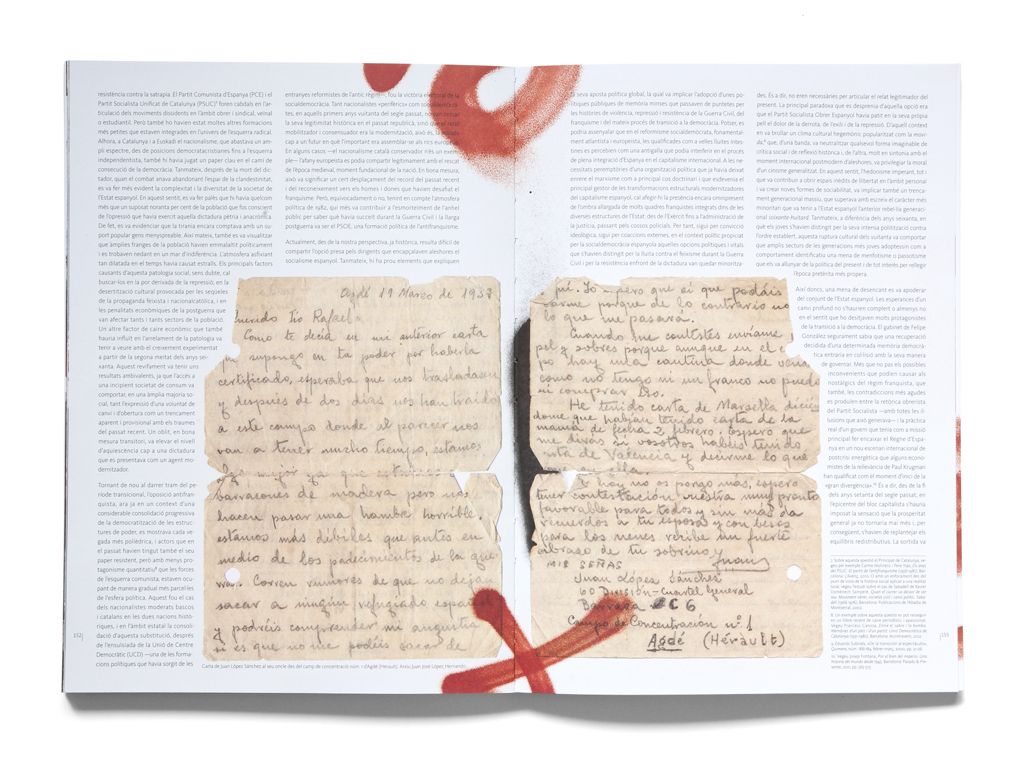 resistència contra la satrapia. El Partit Comunista d'Espanya (PCE) i el
Partit Socialista Unificat de Catalunya (PSUC) foren cabdals en l'ar-
ticulació dels moviments dissidents en l'àmbit obrer i sindical, veïnal
o estudiantil. Però també ho havien estat moltes altres formacions
més petites que estaven integrades en l'univers de l'esquerra radical.
Alhora, a Catalunya i a Euskadi el nacionalisme, que abastava un am-
pli espectre, des de posicions democratacristianes fins a l'esquerra
independentista, també hi havia jugat un paper clau en el camí de
consecució de la democràcia. Tanmateix, després de la mort del dic-
tador, quan el combat anava abandonant l'espai de la clandestinitat,
es va fer més evident la complexitat i la diversitat de la societat de
l'Estat espanyol. En aquest sentit, es va fer palès que hi havia quelcom
més que un suposat noranta per cent de la població que fos conscient
de l'opressió que havia exercit aquella dictadura pètria i anacrònica.
De fet, es va evidenciar que la tirania encara comptava amb un su-
port popular gens menyspreable. Així mateix, també es va visualitzar
que àmplies franges de la població havien emmalaltit políticament
i es trobaven nedant en un mar d'indiferència. L'atmosfera asfixiant
tan dilatada en el temps havia causat estralls. Els principals factors
causants d'aquesta patologia social, sens dubte, cal
buscar-los en la por derivada de la repressió; en la
desertització cultural provocada per les seqüeles
de la propaganda feixista i nacionalcatòlica, i en
les penalitats econòmiques de la postguerra que
van afectar tants i tants sectors de la població.
Un altre factor de caire econòmic que també
hauria influït en l'arrelament de la patologia va
tenir a veure amb el creixement experimentat
a partir de la segona meitat dels anys sei-
xanta. Aquest revifament va tenir uns
resultats ambivalents, ja que l'accés a
una incipient societat de consum va
comportar, en una àmplia majoria so-
cial, tant l'expressió d'un voluntat de
canvi i d'obertura com un trencament
aparent i provisional amb els traumes
del passat recent. Un oblit, en bona
mesura transitori, va elevar el nivell
d'aquiescència cap a una dictadura
que es presentava com un agent mo-
dernitzador.
Tornant de nou al darrer tram del pe-
ríode transicional, l'oposició antifran-
quista, ara ja en un context d'una
considerable consolidació progressiva
de la democratització de les estruc-
tures de poder, es mostrava cada ve-
gada més polièdrica, i actors que en
el passat havien tingut també el seu
paper resistent, però amb menys pro-
tagonisme quantitatiu que les forces
de l'esquerra comunista, estaven ocu-
pant de manera gradual més parcel·les
de l'esfera política. Aquest fou el cas
dels nacionalismes moderats bascos
i catalans en les dues nacions histò-
riques, i en l'àmbit estatal la consoli-
dació d'aquesta substitució, després
de l'ensulsiada de la Unió de Centre
Democràtic (UCD) —una de les forma-
cions polítiques que havia sorgit de les
152
entranyes reformistes de l'antic règim—, fou la victòria electoral de la
socialdemocràcia. Tant nacionalistes «perifèrics» com socialdemòcra-
tes, en aquells primers anys vuitanta del segle passat, no van cercar
la seva legitimitat històrica en el passat republicà, sinó que el relat
mobilitzador i consensuador era la modernització, això és, la mirada
cap a un futur en què l'important era assemblar-se als rics europeus.
En alguns casos, —el nacionalisme català conservador n'és un exem-
ple— l'afany europeista es podia compartir legítimament amb el rescat
de l'època medieval, moment fundacional de la nació. En bona mesura,
això va significar un cert desplaçament del record del passat recent
i del reconeixement vers els homes i dones que havien desafiat el
franquisme. Però, equivocadament o no, tenint en compte l'atmosfera
política de 1982, qui més va contribuir a l'esmorteïment de l'anhel
públic per saber què havia succeït durant la Guerra Civil i la llarga
postguerra va ser el PSOE, una formació política de l'antifranquisme.
Actualment, des de la nostra perspectiva, ja històrica, resulta difícil de
compartir l'opció presa pels dirigents que encapçalaven aleshores el
socialisme espanyol. Tanmateix, hi ha prou elements que expliquen
la seva aposta política global, la qual va implicar l'adopció d'unes po-
lítiques públiques de memòria minses que passaven de puntetes per
les històries de violència, repressió i resistència de la Guerra Civil, del
franquisme i del mateix procés de transició a la democràcia. Potser, es
podria assenyalar que en el reformisme socialdemòcrata, fonamental-
ment atlantista i europeista, les qualificades com a velles lluites intes-
tines es percebien com una antigalla que podia interferir en el procés
de plena integració d'Espanya en el capitalisme internacional. A les ne-
cessitats peremptòries d'una organització política que ja havia deixat
enrere el marxisme com a principal cos doctrinari i que esdevenia el
principal gestor de les transformacions estructurals modernitzadores
del capitalisme espanyol, cal afegir-hi la presència encara omnipresent
de l'ombra allargada de molts quadres franquistes integrats dins de les
diverses estructures de l'Estat; des de l'Exèrcit fins a l'administració de
la justícia, passant pels cossos policials. Per tant, sigui per convicció
ideològica, sigui per coaccions externes, en el context polític propiciat
per la socialdemocràcia espanyola aquelles opcions polítiques i vitals
que s'havien distingit per la lluita contra el feixisme durant la Guerra
Civil i per la resistència enfront de la dictadura van quedar minoritza-
des. És a dir, no eren necessàries per articular el relat legitimador del
present. La principal paradoxa que es desprenia d'aquella opció era
que el Partit Socialista Obrer Espanyol havia patit en la seva pròpia
pell el dolor de la derrota, de l'exili i de la repressió. D'aquell context
en va brollar un clima cultural hegemònic popularitzat com la movi-
da, que, d'una banda, va neutralitzar qualsevol forma imaginable de
crítica social i de reflexió històrica i, de l'altra, molt en sintonia amb el
moment internacional postmodern d'aleshores, va privilegiar la moral
d'un cinisme generalitzat. En aquest sentit, l'hedonisme imperant, tot i
que va contribuir a obrir espais inèdits de llibertat en l'àmbit personal
i va crear noves formes de sociabilitat, va implicar també un trenca-
ment generacional massa dràstic, que superava amb escreix el caràcter més
minoritari que va tenir a l'Estat espanyol l'anterior rebel·lia generacional
soixante-huitard. Tanmateix, a diferència dels anys seixanta, en
què els joves s'havien distingit per la seva intensa politització contra
l'ordre establert, aquesta ruptura cultural dels vuitanta va comportar
que amplis sectors de les generacions més joves adoptessin com a
comportament una mena de menfotisme o passotisme
que els va allunyar de la política del present i de tot interès per rellegir
l'època pretèrita més propera.
Així doncs, una mena de desencant es va apoderar
del conjunt de l'Estat espanyol. Les esperances d'un
canvi profund no s'haurien complert o almenys no
en el sentit que ho desitjaven molts protagonistes
de la transició a la democràcia. El gabinet de Felipe
González segurament sabia que una recuperació
decidida d'una determinada memòria democrà-
tica entraria en col·lisió amb la seva manera
de governar. Més que no pas els possibles
inconvenients que podien causar als
nostàlgics del règim franquista, que
també, les contradiccions més agudes
es produïen entre la retòrica obrerista
del Partit Socialista —amb totes les il-
lusions que això generava— i la pràctica
real d'un govern que tenia com a missió
principal fer encaixar el Regne d'Espa-
nya en un nou escenari internacional de
postcrisi energètica que alguns econo-
mistes de la rellevància de Paul Krugman
han qualificat com el moment d'inici de la
«gran divergència». És a dir, des de la fi
dels anys setanta del segle passat, en
l'epicentre del bloc capitalista s'hauria
imposat la sensació que la prosperitat
general ja no tornaria mai més i, per
consegüent, s'havien de replantejar els
equilibris redistributius. La sortida va
153
Agdé 19 Marzo de 1939
Querido Tío Rafael:
Como te decía en mi anterior carta
que supongo en tu poder por haberla
certificado, esperaba que nos trasladasen
y después de dos días nos han traído
a este campo donde al parecer nos
van a tener mucho tiempo, estamos
algo mejor ya que estamos en
barracones de madera pero nos
hacen pasar una hambre horrible,
estamos más débiles que antes en
medio de los padecimientos de la gue-
rra. Corren rumores de que no dejan
sacar a ningún refugiado español
y podréis comprender mi angustia
si es que no me podéis sacar de
aquí. Yo espero que sí que podáis
sacarme porque de lo contrario no
lo que me pasará.
Cuando me contestes envíame
papel y sobres porque aunque en el cam-
po hay una cantina donde venden
como no tengo ni un franco no puedo
ni comprar eso.
He tenido carta de Marsella dicién-
dome que habían tenido carta de la
mamá de fecha 3 febrero; espero que
me digas si vosotros habéis tenido
carta de Valencia y decirme lo que
hay no os pongo más, espero
tener contestación vuestra muy pronto
favorable para todos y sin más da
recuerdos a tu esposa y con besos
para los nenes recibe un fuerte
abrazo de tu sobrino,
Juan
MIS SEÑAS
Juan López Sánchez
60 División-Cuartel General
Barraca C 6
Campo de Concentración nº 1
Agdé (Hérault)
Carta de Juan López Sánchez al seu oncle des del camp de concentració núm. 1 d'Agdé (Hérault). Arxiu Juan José López Hernando.